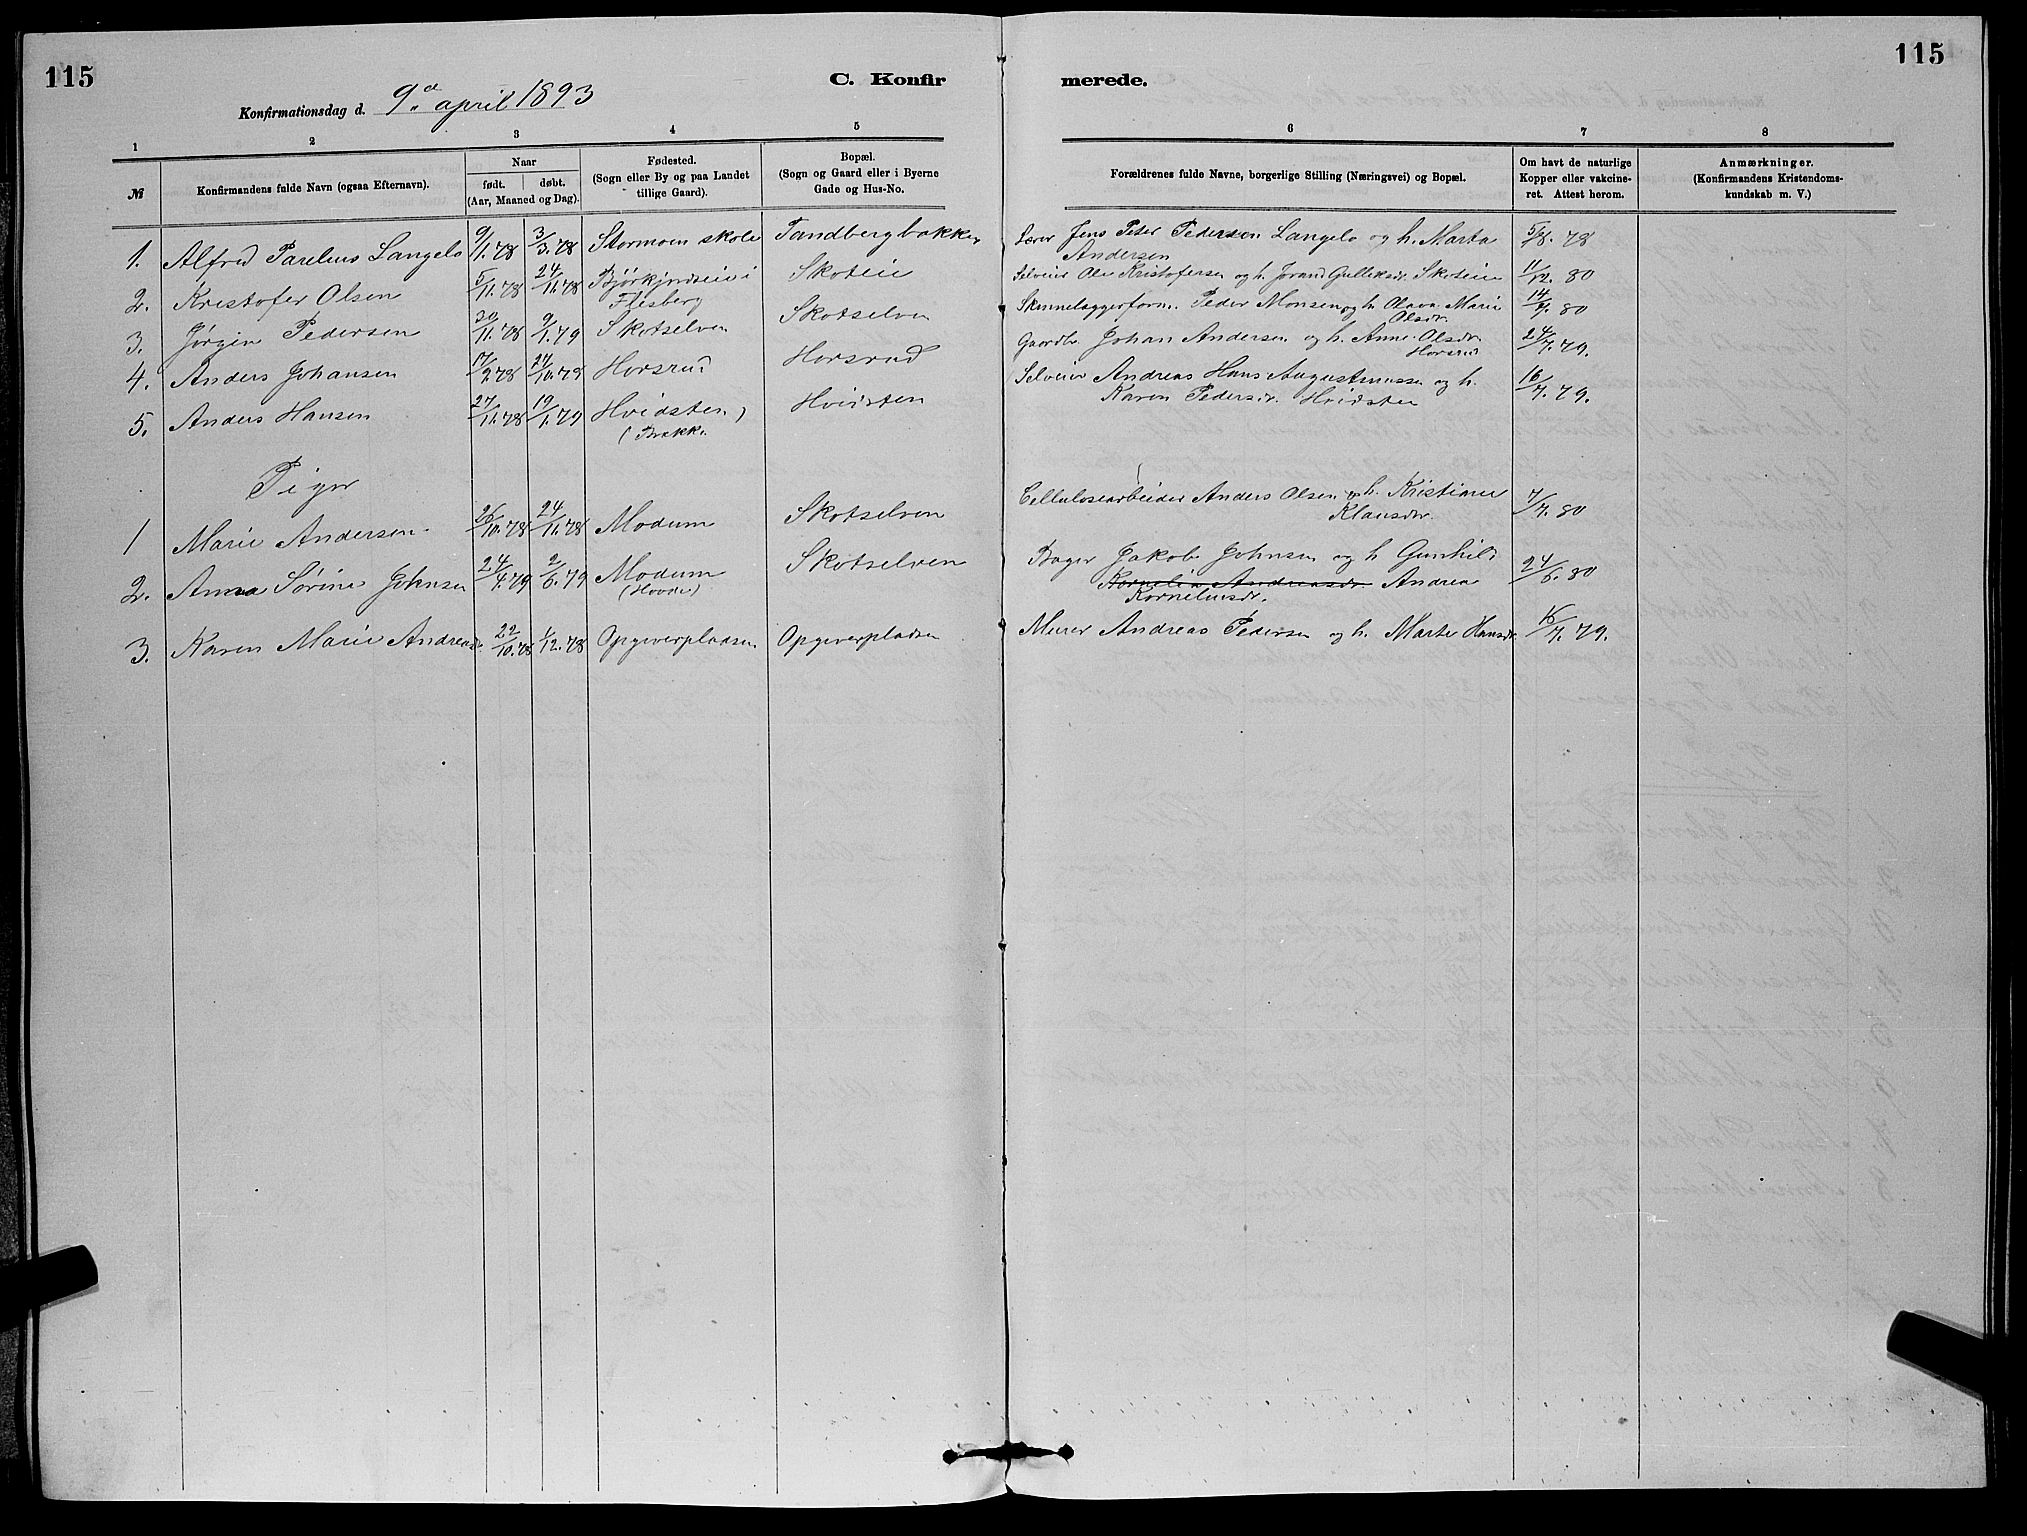 115
C. Konfir
merede.
115
Konfirmationsdag d. 9de april 1893
1 2 3 4 5 6 7 8
№
Konfirmandens fulde Navn (ogsaa Efternavn).
Naar
født. døbt.
(Aar, Maaned og Dag).
Fødested.
(Sogn eller By og paa Landet
tillige Gaard).
Bopæl.
(Sogn og Gaard eller i Byerne
Gade og Hus-No.
Forældrenes fulde Navne, borgerlige Stilling (Næringsvei) og Bopæl.
Om havt de naturlige
Kopper eller vakcine-
ret. Attest herom.
Anmærkninger.
(Konfirmandens Kristendoms-
kundskab m. V.)
1. Alfred Parelius Langelo 9/1.78 3/3.78 Stormoen skole Tandbergbakken Lærer Jens Peter Pedersen Langelo og h. Marta 5/8.78
Andersen
2. Kristofer Olsen 5/11.78 24/11.78 Skoteie Selveier Ole Kristofersen og h. Jorand Gulleksdr. Skoteie 11/12.80
Flisberg
3. Jørgin Pedersen 20/11.78 9/1.79 Skotselven Skotselven Peder Monsen og h. Olava Marie 14/7.80
Olsdr.
4. Anders Johansen 17/9.78 27/10.78 Horsrud Horsrud Gaardbr. Johan Andersen og h. Anne Olsdr. 24/7.79.
Horsrud
5. Anders Hansen 27/11.78 19/1.79 Hvidsten Hvidsten Selveier Andreas Hans Augustinussen og h. 16/7.79.
(Bakke) Karen Pedersdr. Hvidsten
Piger
1 Marie Andersen 26/10.78 24/11.78 Modum Skotselven Cellulosearbeider Anders Olsen og h. Kristiane 7/7.80
Klausdr.
2. Anna Sørine Johnsen 24/4.79 2/6.79 Modum Skotselven Bager Jakob Johnsen og h Gunhild 24/6.80
(Hovde) Kornelia Andreasdr Andrea
Korneliusdr.
3. Karen Marie Andreasdr. 22/10.78 1/12.78 Opgiverpladsen Opgiverpladsen Murer Andreas Pedersen og h. Marte Hansdr. 16/7.79.